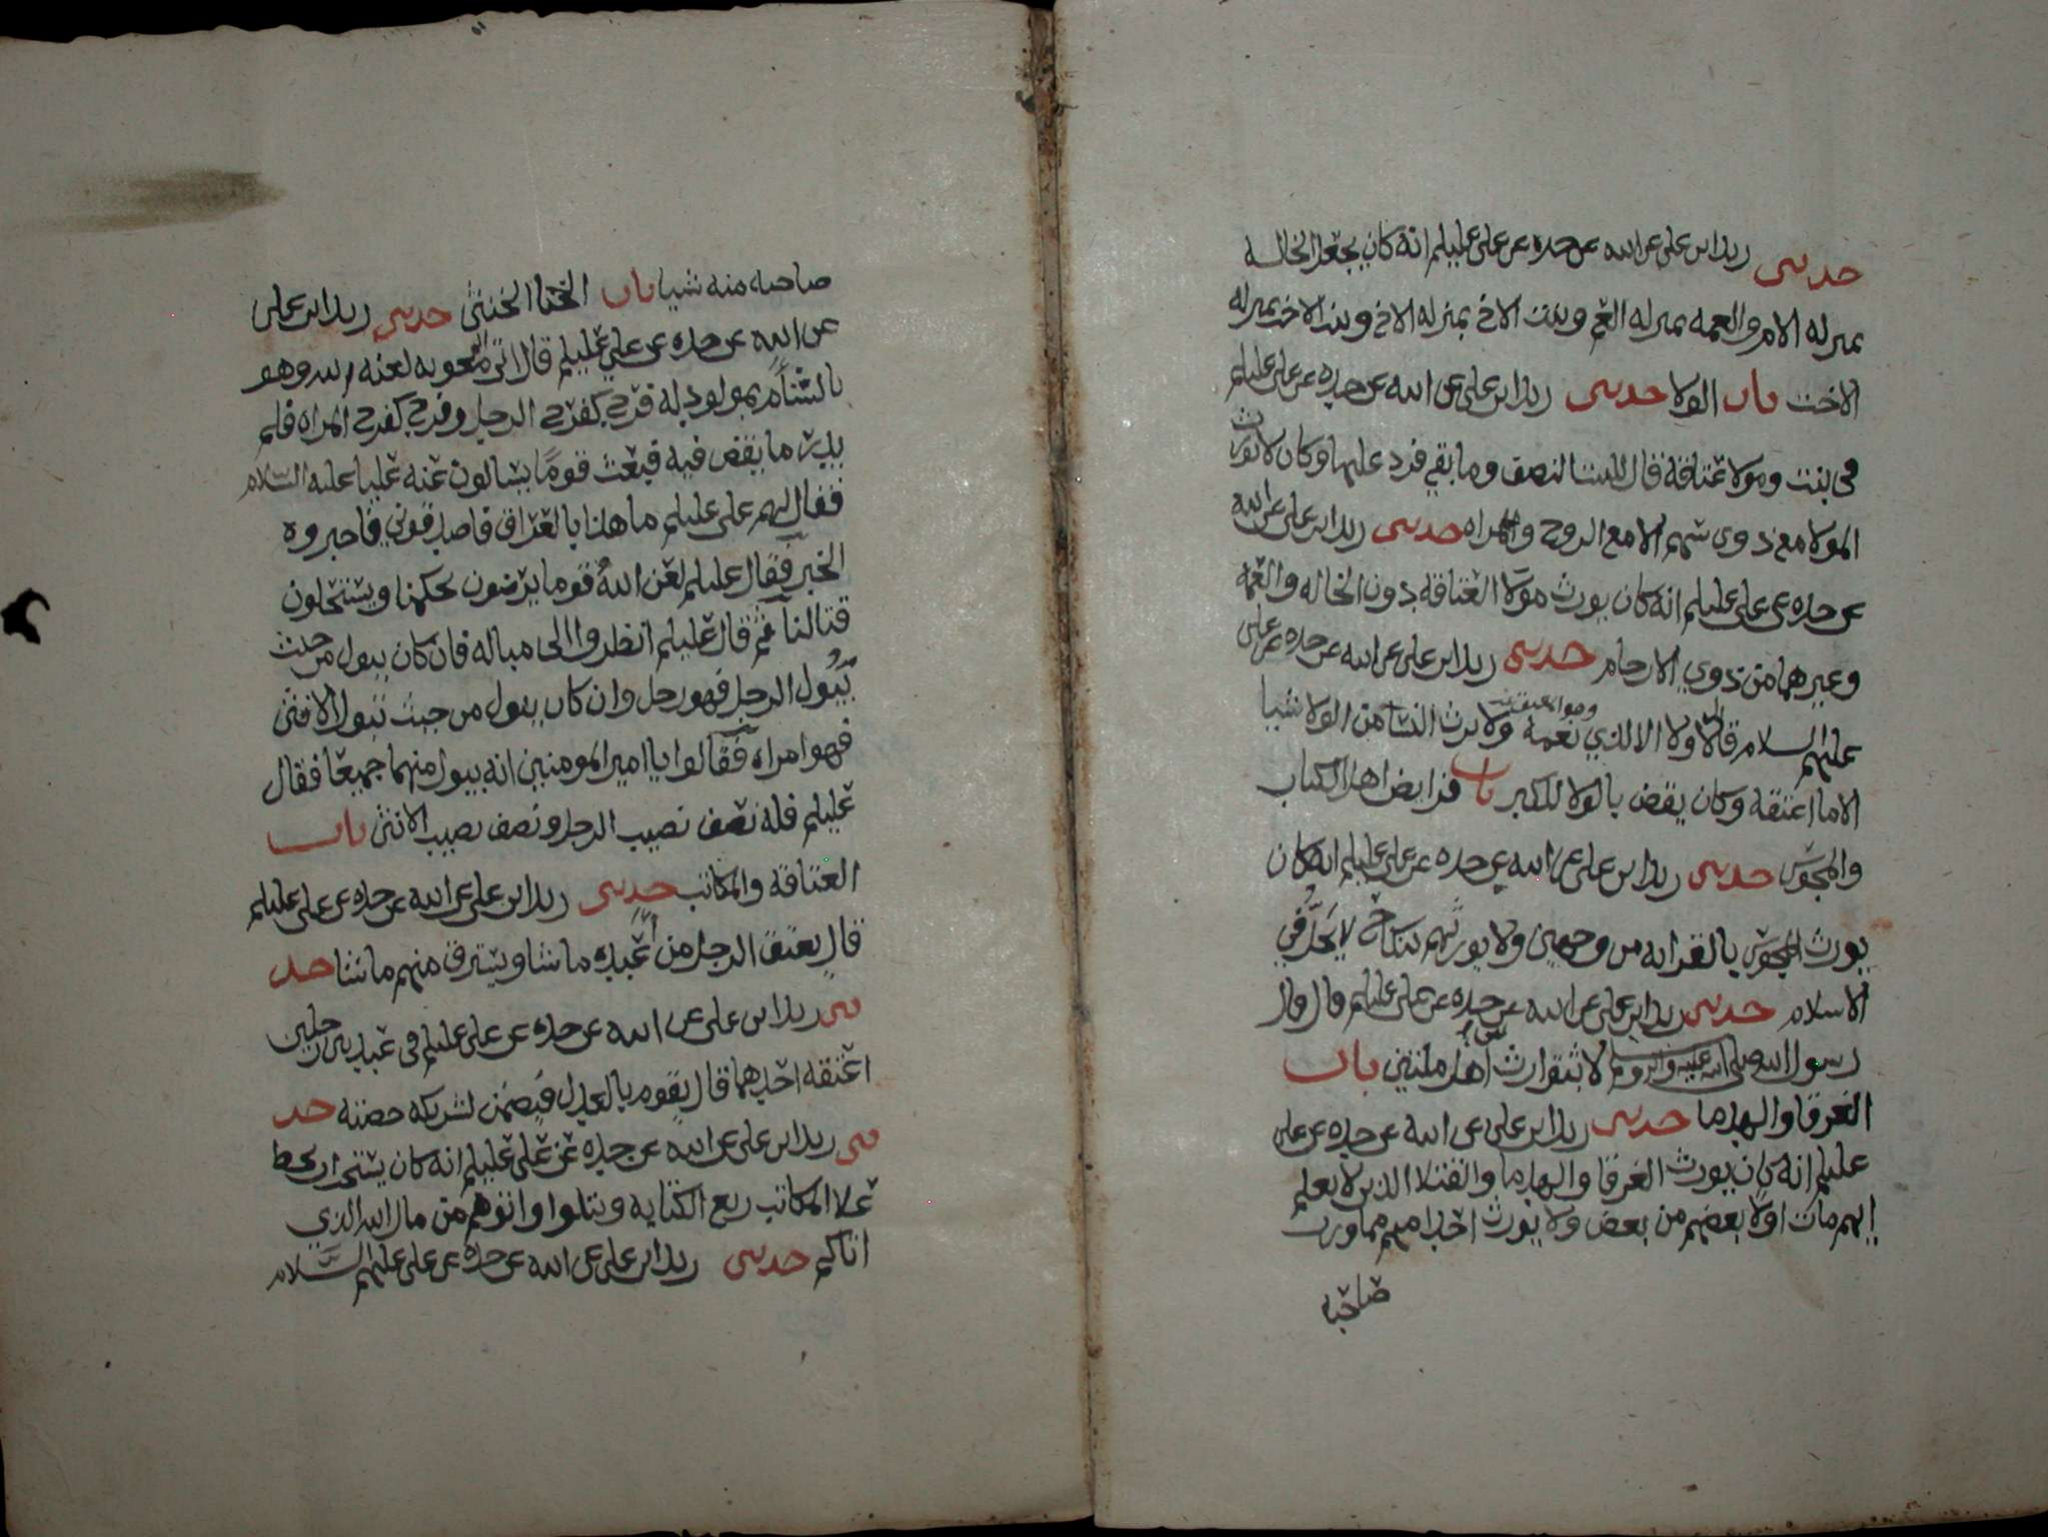 حدثني زيد ابن علي عن ابيه عن جده عن علي عليلم انه كان يجعل الخاله
بمنزله الام والعمه بمنزله العم وبنت الاخ بمنزله الاخ وبنت الاخت بمنزله
الاخت باب الولا حدثني زيد ابن علي عن ابيه عن جده عن علي عليلم
في بنت ومولا عتاقة قال للبنت النصف وما بقي فرد عليها وكان لا يورث
المولا مع ذوي سهم الا مع الزوج والمراه حدثني زيد ابن علي عن ابيه
عن جده عن علي عليلم انه كان يورث مولا العتاقه دون الخاله والعمه
وغيرهما من ذوي الارحام حدثني زيد ابن علي عن ابيه عن جده عن علي
عليهم السلام قال لا ولا الا لذي نعمة ولا يرث النسا من الولا شيا
الا ما اعتقه وكان يقضي بالولا للكبر باب فرايض اهل الكتاب
والمجوس حدثني زيد ابن علي عن ابيه عن جده عن علي عليلم انه كان
يورث المجوس بالقرابه من وجهين ولا يورثهم بنكاح لا يحل في
الاسلام حدثني زيد ابن علي عن ابيه عن جده عن علي عليلم قال قال
رسول الله صلى الله عليه واله وسلم لا يتوارث اهل ملتين باب
الغرقا والهدما حدثني زيد ابن علي عن ابيه عن جده عن علي
عليلم انه كان يورث الغرقا والهدما والقتلا الذين لا يعلم
ايهم مات اولا بعضهم من بعض ولا يورث احدا منهم مما ورث
صاحبه
صاحبه منه شيا باب الخنا الخنثى حدثني زيد ابن علي
عن ابيه عن جده عن علي عليلم قال اتي معويه لعنه الله وهو
بالشام بمولود له فرج كفرج الرجل وفرج كفرج المراه فلم
يدر ما يقض فيه فبعث قوما يسالون عنه عليا عليه السلام
فقال لهم علي عليلم ما هذا بالعراق فاصدقوني فاخبروه
الخبر فقال عليلم لعن الله قوما يرضون بحكمنا ويستحلون
قتالنا ثم قال عليلم انظروا الى مباله فان كان يبول من حيث
يبول الرجل فهو رجل وان كان يبول من حيث تبول الانثى
فهو امراه فقالوا يا امير المومنين انه يبول منهما جميعا فقال
عليلم فله نصف نصيب الرجل ونصف نصيب الانثى باب
العتاقه والمكاتب حدثني زيد ابن علي عن ابيه عن جده عن علي عليلم
قال يعتق الرجل من عبيده ما شا ويسترق منهم ما شا حد
ثني زيد ابن علي عن ابيه عن جده عن علي عليلم في عبد بين رجلين
اعتقه احدهما قال يقوم بالعدل فيضمن لشريكه حصته حد
ثني زيد ابن علي عن ابيه عن جده عن علي عليلم انه كان يستحب ان يحط
علا المكاتب ربع الكتابه ويتلوا واتوهم من مال الله الذي
اتاكم حدثني زيد ابن علي عن ابيه عن جده عن علي عليهم السلام